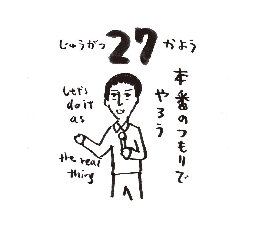 じゅうがつ 27 かよう
本番のつもりで
やろう
Let's
do it
as
the real
thing